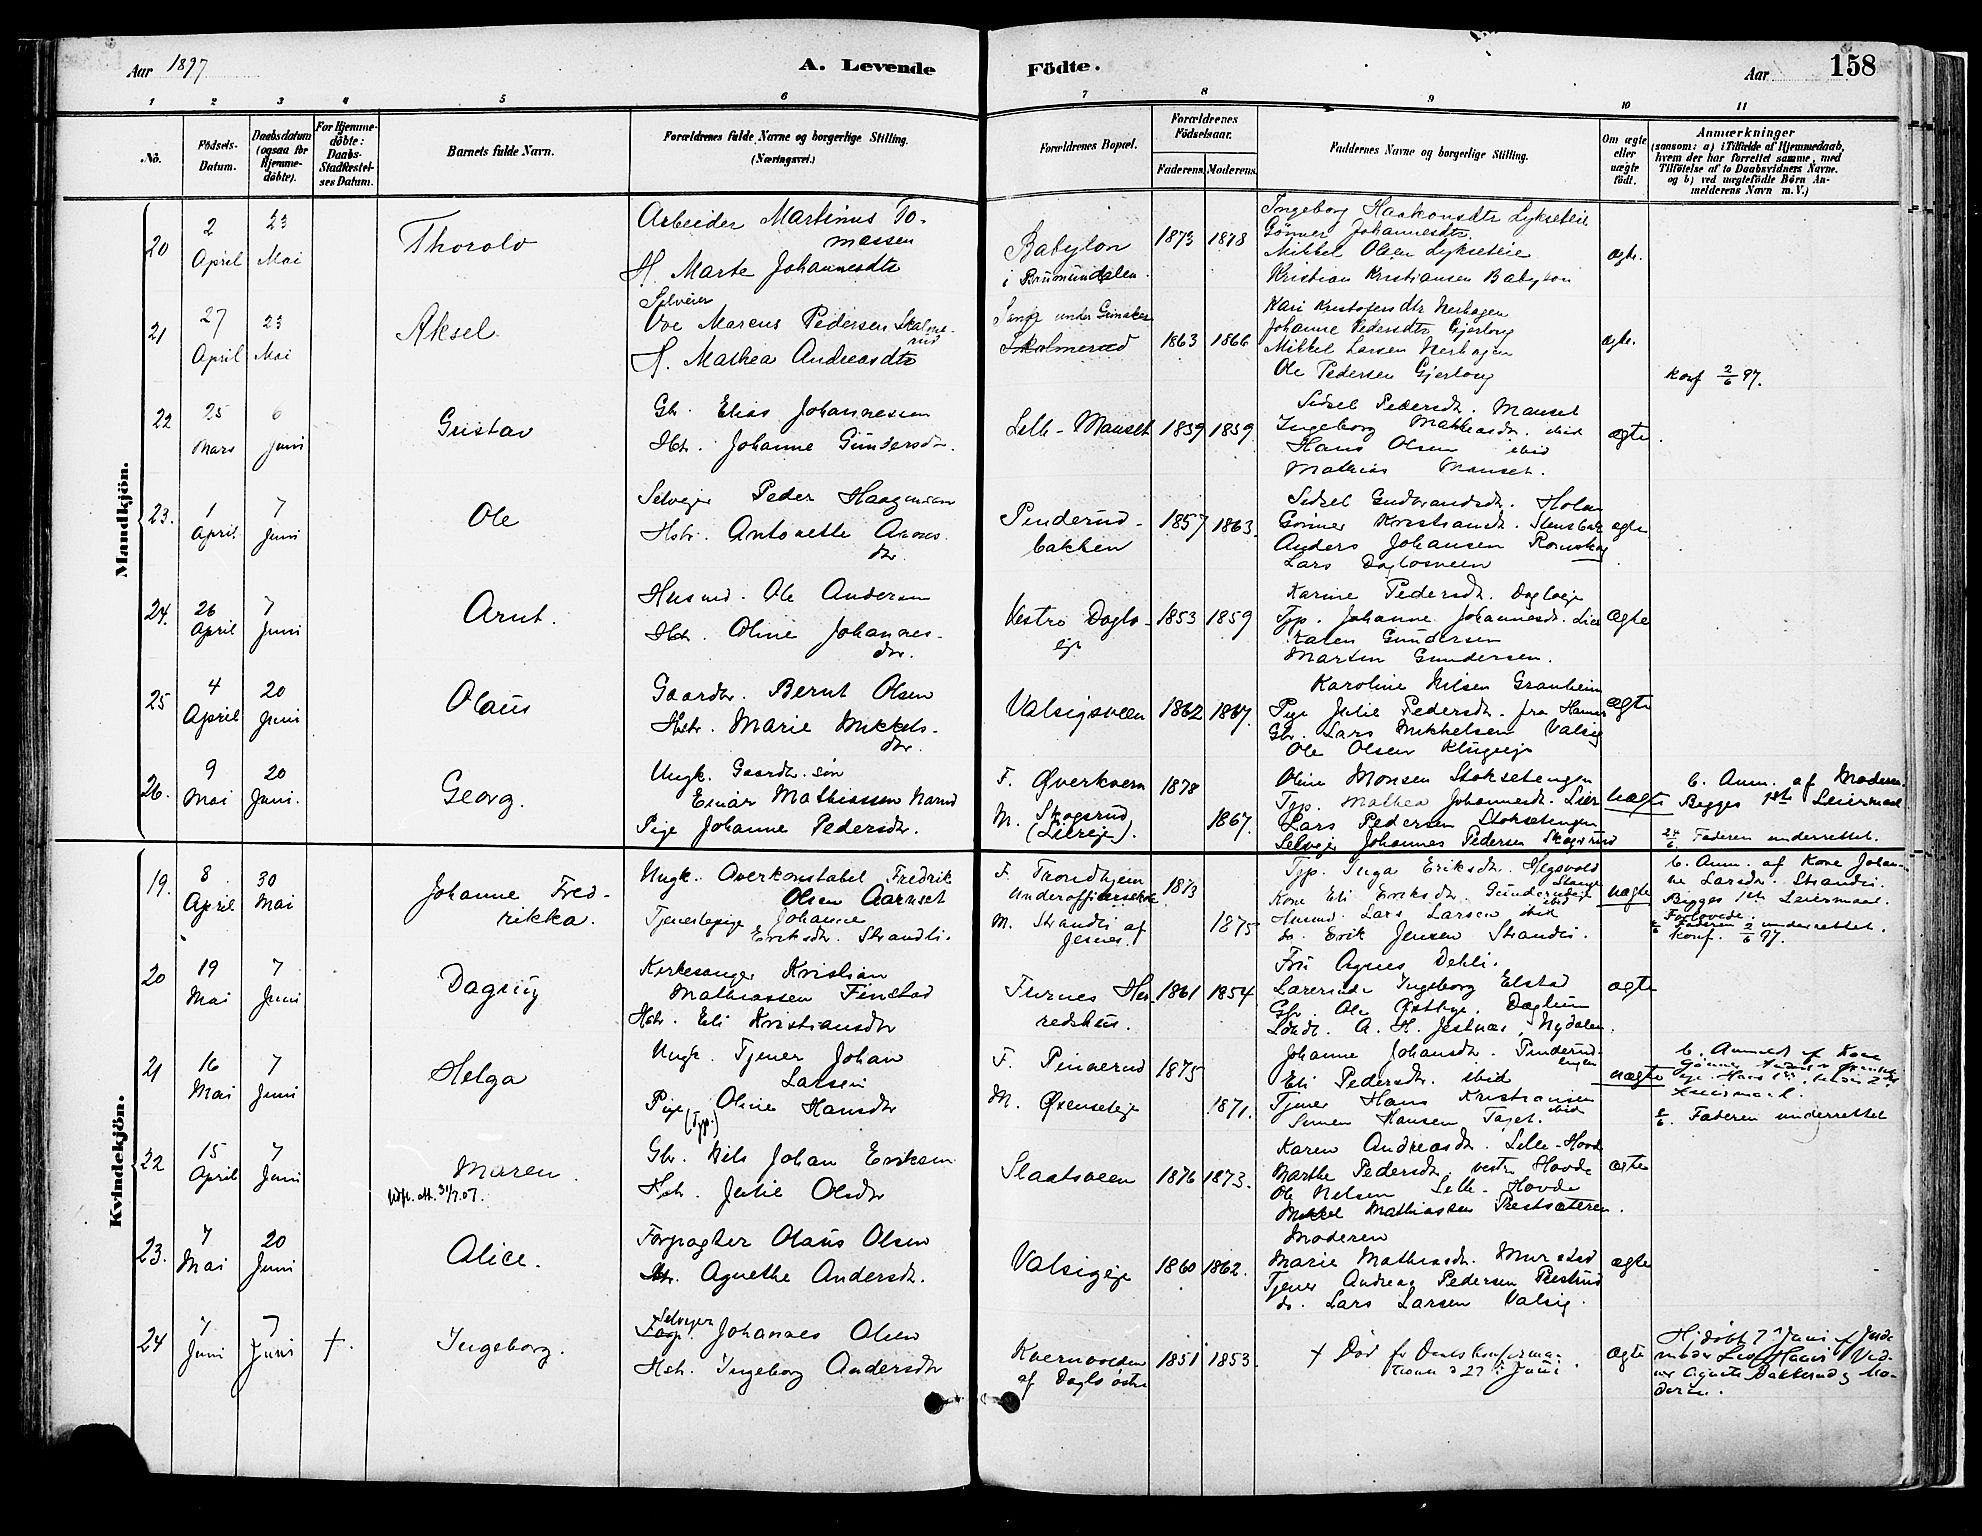 Aar 1897
A. Levende Födte.
Aar
158
1 2 3 4 5 6 7 8 9 10 11
No.
Födsels-Datum.
Daabsdatum (ogsaa for Hjemme-döbte).
For Hjemme-döbte: Daabs-Stadfæstel-ses Datum.
Barnets fulde Navn.
Forældrenes fulde Navne og borgerlige Stilling. (Næringsvei.)
Forældrenes Bopæl.
Forældrenes Födselsaar.
Faderens. Moderens.
Faddernes Navne og borgerlige Stilling.
Om ægte eller uægte født.
Anmærkninger
(saasom: a) i Tilfælde af Hjemmedaab, hvem der har forrettet samme, med Tilföielse af to Daabsvidners Navne. og b) ved uægtefödte Börn An-melderens Navn m.V.)
Mandkjön.
20
2 April
23 Mai
Thorolv
Arbeider Martinus To-
massen
H. Marte Johannesdtr
Babylon
i Brumunddalen.
1873 1878
Ingeborg Haakonsdtr Lykseteie
Gunner Johannesdtr.
Mikkel Olsen Lykseteie
Kristian Kristiansen Babylon
ægte.
21
27 April
23 Mai
Aksel
Selveier
Ove Marcus Pedersen Skolme-
rud
H. Mathea Andreasdtr
Skolmerud
1863 1866
Kari Kristofersdtr Nerhagen
Johanne Pedersdtr Gjerlong
Mikkel Larsen Nerhagen
Ole Pedersen Gjerlong
ægte.
Konf 2/6 97.
22
25 Mars
6 Juni
Gustav
Gbr. Elias Johannesen
Hstr. Johanne Gundersdtr.
Lille-Mauset
1859 1859
Sidsel Pedersdtr. Mauset
Ingeborg Mathiasdtr. ibid
Hans Olsen ibid
Mathias Mauset.
ægte
23.
1 April.
7 Juni
Ole
Selveier Peder Haagensen
Hstr. Antonette Arons-
dtr.
Pinderud-
bakken
1857 1863.
Sidsel Gudbrandsdtr. Holen
Gunner Kristiansdtr. Stensbak
Anders Johansen Romskog
Lars Dagloveen
ægte
24.
26 April
7 Juni
Arnt.
Husmd. Ole Andersen
Hstr. Oline Johannes-
dtr.
Vestre Daglo-
eje
1853 1859
Karine Pedersdtr. Dagloeje
Typ. Johanne Johannesdtr. Lier
Karen Gundersen
Marten Gundersen.
ægte
25
4 April
20 Juni
Olaus
Gaardbr. Bernt Olsen
Hstr. Marie Mikkels-
dtr.
Valsigsveen
1862 1867.
Karoline Nilsen Granheim
Pige Julie Pedersdtr. fra Hamar
Gbr. Lars Mikkelsen Valsig
Ole Olsen Klugeje
ægte
26.
9 Mai
20 Juni.
Georg.
Ungk. Gaardbr. søn
Einar Mathiassen Narud
Pige Johanne Pedersdtr.
F. Øverkvern
M. Skogsrud
(Liereje).
1878
1867.
Oline Monsen Stoksetengen
Typ. Mathea Johannesdtr. Lier
Lars Pedersen Stoksetengen
Selvejer Johannes Pedersen Skogsrud
uægte
b. Anm. af Moderen.
Begges 1ste Leiermaal
24/6 Faderen underrettet.
Kvindekjön.
19.
8 April
30 Mai
Johanne Fred-
rikka.
Ungk. Overkonstabel Fredrik
Olsen Aarnset
Tjenestepige Johanne
Eriksdtr. Strandli.
F. Trondhjem
Underofficerskole
M. Strandli af
Jesnes.
1873
1875
Typ. Inga Eriksdtr. Hegsvold
Stange
Kone Eli Eriksdtr. Gunderudeje
ibid
Husmd. Lars Larsen ibid
do. Erik Jensen Strandli.
uægte
b. Anm. af Kone Johan-
ne Larsdtr. Strandli.
Begges 1ste Leiermaal.
Forlovede.
Faderen underrettet.
Konf. 2/6 97.
20
19 Mai
7 Juni
Dagny
Kirkesanger Kristian
Mathiassen Finstad
Hstr. Eli Kristiansdtr
Furnes Her-
redshus.
1861 1854
Fru Agnes Dehli.
Lærerinde Ingeborg Elstad
Gbr. Ole Østbye. Daglum
Landh. A. H. Jestnæs, Nydalen.
ægte
21
16 Mai
7 Juni
Helga
Ungk. Tjener Johan
Larsen
Pige Oline Hansdtr
(Typ.)
F. Pinderud
M. Øxenseteje
1875
1871.
Johanne Johansdtr. Pinderud-
engen
Eli Pedersdtr. ibid
Tjener Hans Kristiansen
ibid
Simen Hansen Toget.
uægte
b. Anmeldt af Kone
Leiermaal.
6/6. Faderen underrettet
22
15 April
7 Juni
Maren.
Udf. Att. 31/7.07.
Gbr. Nils Johan Eriksen
Hstr. Julie Olsdtr
Slaatsveen
1876 1873.
Karen Andreasdtr. Lille-Hovde
Marthe Pedersdtr. vestre Hovde
Ole Nilsen Lille-Hovde
Mikkel Mathiassen Prestsæteren.
ægte
23.
7 Mai
20 Juni
Alice.
Forpagter Olaus Olsen
Hstr. Agnethe Andersdtr.
Valsigeje
1860 1862.
Moderen
Marie Mathiasdtr. Murstad
Tjener Andreas Pedersen Prestrud
do. Lars Larsen Valsig.
ægte
24
7 Juni
7 Juni
†.
Ingeborg.
Selvejer
Johannes Olsen
Hstr. Ingeborg Andersdtr
Kvernvolden
af Daglo østre
1851 1853.
† Død før Daabskonfirma-
tionen d 27de Juni
ægte
Hj. døbt 7de Juni af Jorde-
moder
Moderen.